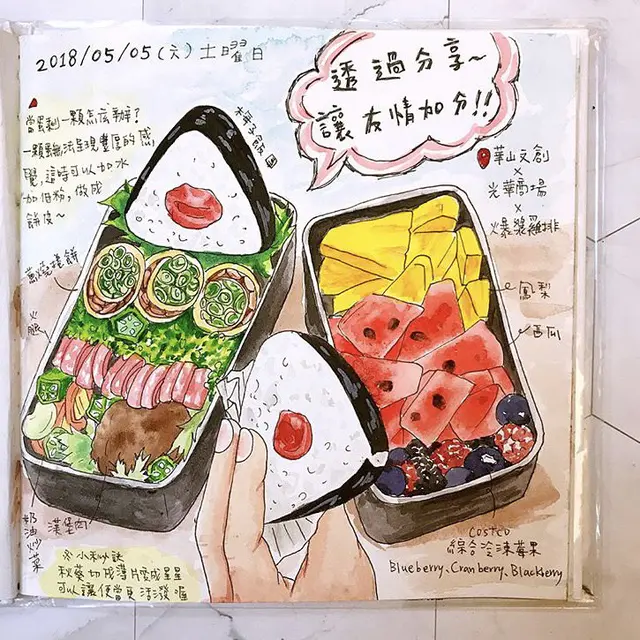 2018/05/05(六)土曜日
透過分享~
讓友情加分!!
當蛋剩一顆怎麼辦?
一顆無法呈現豐厚的感
覺,這時可以加水
加低粉,做成
餅皮~
梅子飯糰
華山文創
×
光華商場
×
爆漿雞排
蔥燒捲餅
火腿
鳳梨
西瓜
奶油炒菜
漢堡肉
※小秘訣
秋葵切成薄片變成星星
可以讓便當更活潑喔
Costco
綜合冷凍莓果
Blueberry、Cranberry、Blackberry